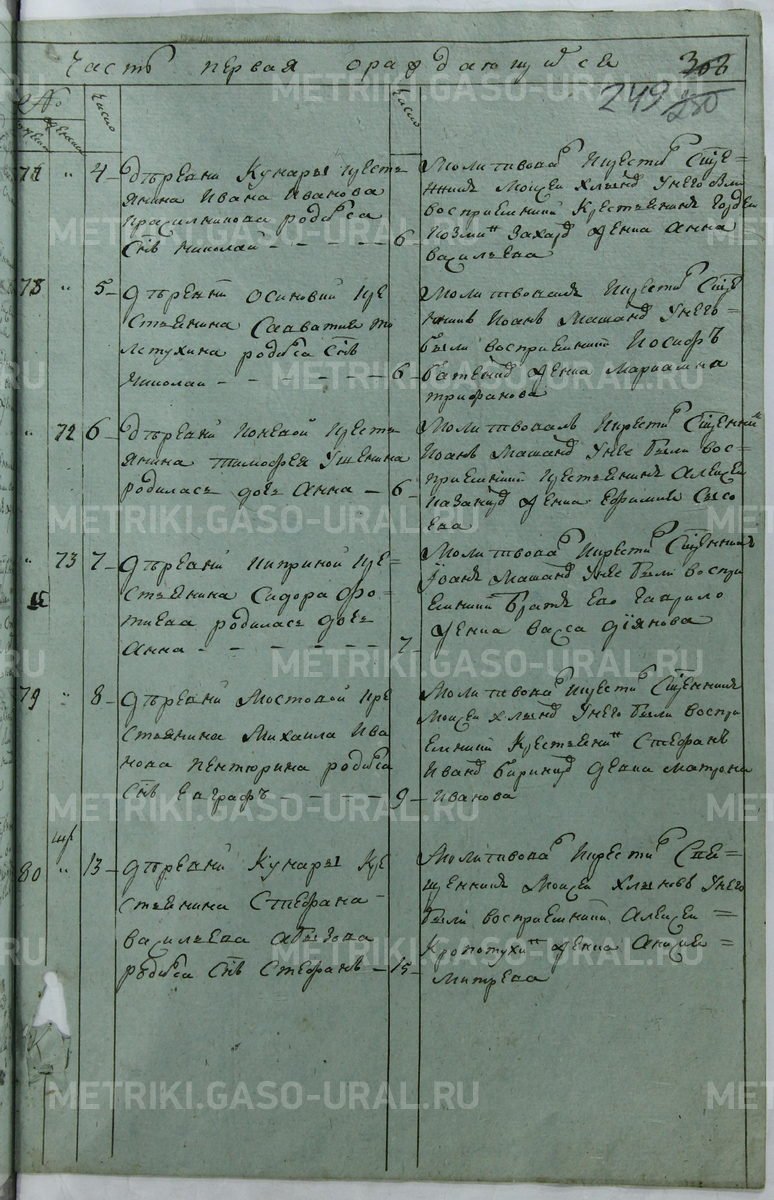 Часть первая о раждающихся
303
249
250
№
число
число
77 " 4 Дѣревни Кунары кресть
янина Ивана Иванова
Красилникова родился
Сынъ николай - - - - - 6
Молитвовалъ Икрестилъ Сщен
никъ Моисей Хлынов Унего были
восприемники Крестьянинъ
Захаровъ Жонка Анна
василиева
78 " 5 Дѣревни Осиновки кре
стьянина Савватия то
лстухина родился Сынъ
николай - - - - - 6
Молитвовалъ Икрестилъ Сщен
никъ Иоанъ Машанов Унего
были восприемники Иосифъ
Жонка Мариамна
трифанова
" 72 6 Дѣревни Коневой Кресть
янина Тимофея Ушенина
родилась дочь Анна - 6
Молитвовалъ Икрестилъ Сщенникъ
Иоанъ Машанов Унее были вос
приемники Крестьянинъ Алексей
Казанцов Жонка Ефимия Сысо
ева
" 73 7 Дѣревни Киприной Кре
стьянина Сидора Фо
тиева родилась дочь
Анна - - - - - 7
Молитвовалъ Икрестилъ Сщенникъ
Иоанъ Машанов Унее были воспри
емники братъ Ево Гаврило
Жонка васса діянова
79 " 8 Дѣревни Мостовой кре
стьянина Михаила Ива
нова Пентюрина родился
Сынъ Евграфъ - - - - 9
Молитвовалъ Икрестилъ Сщенникъ
Моисей хлынов Унего были воспри
емники Крестьянинъ Стефанъ
Иванов Девка Матрона
Иванова
80 " 13 Дѣревни Кунары Кре
стьянина Стефана
василиева Абызова
родился Сынъ Стефанъ - 15
Молитвовалъ Икрестилъ Свя
щенникъ Моисей Хлыновъ Унего
были восприемники Алексей
Кропотухинъ Жонка
митрева
METRIKI.GASO-URAL.RU